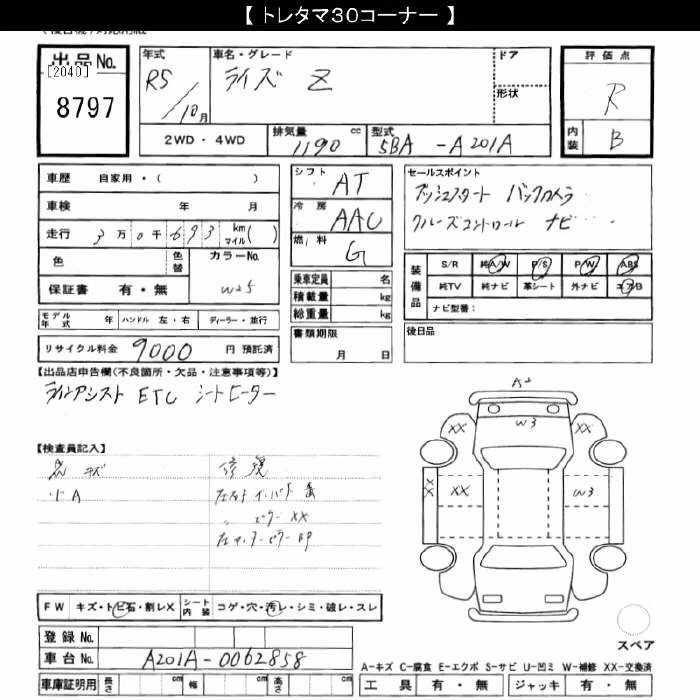 【 トレタマ30コーナー 】
出品No. [2040] 8797
年式 R5 / 10月
車名・グレード ライズ Z
ドア
形状
評価点 R
内装 B
2WD・4WD
排気量 1190 cc
型式 5BA -A201A
車歴 自家用・( )
車検 年 月
走行 3万0千693 km マイル( )
色 色替 カラーNo. W25
保証書 有・無
シフト AT
冷房 AAC
燃料 G
乗車定員 名
積載量 kg
総重量 kg
セールスポイント
プッシュスタート バックカメラ
クルーズコントロール ナビ
装備品 S/R 純A/W P/S P/W ABS
純TV 純ナビ 革シート 外ナビ エアB
ナビ型番:
モデル年式 年 ハンドル 左・右 ディーラー・並行
書類期限 月 日
後日品
リサイクル料金 9000 円 預託済
【出品店申告欄(不良箇所・欠品・注意事項等)】
ラインアシスト ETC シートヒーター
【検査員記入】
キズ
小A
修復
XX
A2
W3
XX XX
XX XX W3
FW キズ・トビ石・割レX シート内装 コゲ・穴・汚レ・シミ・破レ・スレ
登録No.
車台No. A201A-0062858
スペア
A-キズ C-腐食 E-エクボ S-サビ U-凹ミ W-補修 XX-交換済
車庫証明用 長さ cm 幅 cm 高さ cm
工具 有・無 ジャッキ 有・無